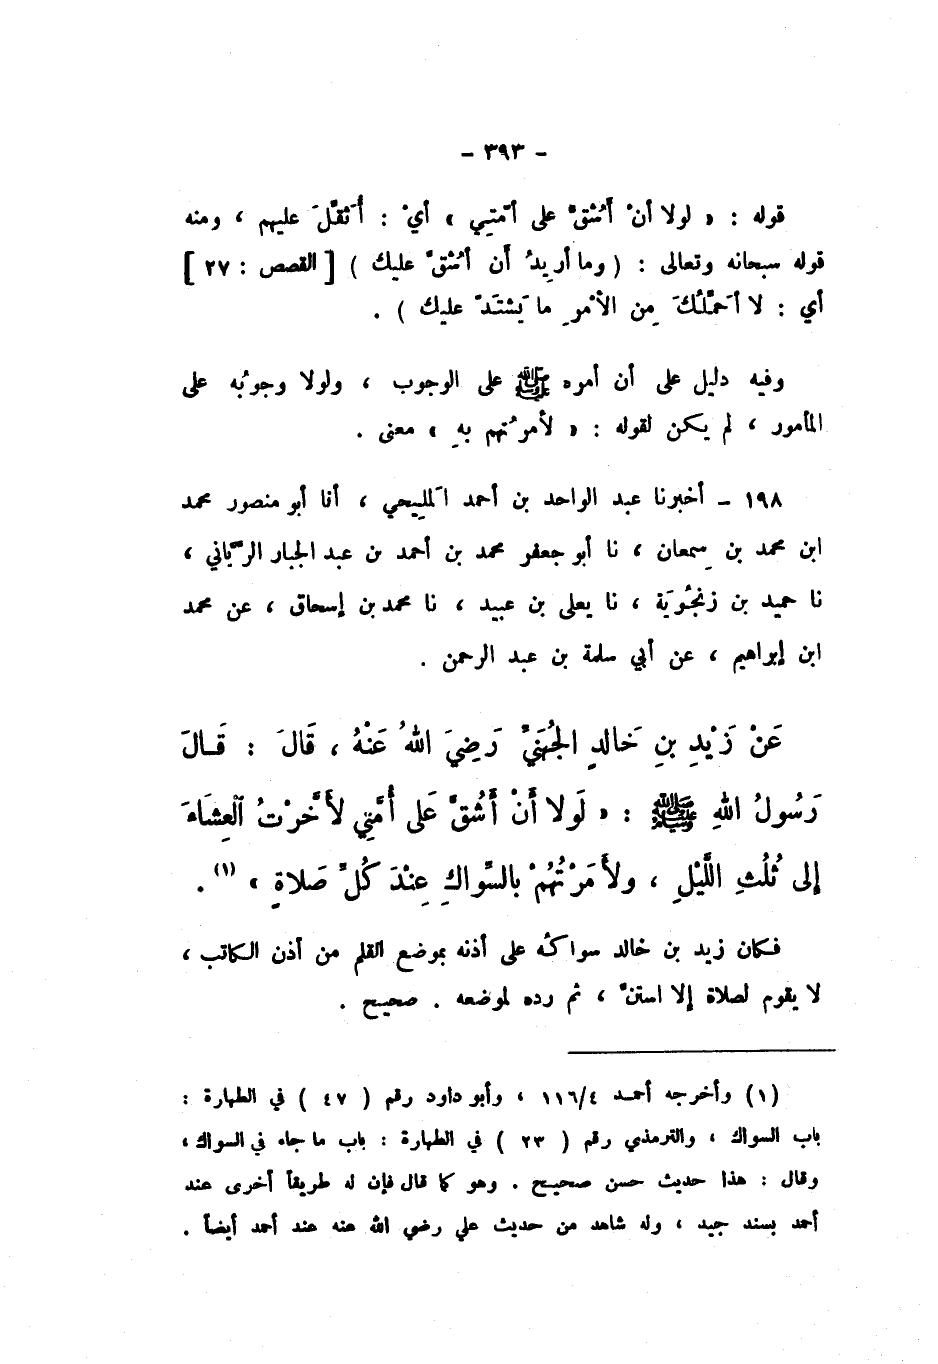 - ٣٩٣ -
قوله : « لولا أنْ أَشُقَّ على أمّتي » أيْ : أُثَقِّلَ عليهم ، ومنه
قوله سبحانه وتعالى : ( وما أريدُ أن أشُقَّ عليك ) [ القصص : ٢٧ ]
أي : لا أحَمِّلُكَ مِن الأمْرِ ما يَشتَدُّ عليك ) .
وفيه دليل على أن أمره ﷺ على الوجوب ، ولولا وجوبُه على
المأمور ، لم يكن لقوله : « لأمرْتُهم بهِ » معنى .
١٩٨ - أخبرنا عبد الواحد بن أحمد المَلِيحي ، أنا أبو منصور محمد
ابن محمد بن سِمعان ، نا أبو جعفر محمد بن أحمد بن عبد الجبار الرَّيّاني ،
نا حميد بن زنجُويَة ، نا يعلى بن عبيد ، نا محمد بن إسحاق ، عن محمد
ابن إبراهيم ، عن أبي سلمة بن عبد الرحمن .
عَنْ زَيْدِ بنِ خَالدٍ الجُهَنيِّ رَضِيَ اللهُ عَنْهُ ، قَالَ : قَالَ
رَسُولُ اللهِ ﷺ : « لَولا أَنْ أَشُقَّ عَلى أُمَّتِي لأَخَّرْتُ الْعِشَاءَ
إلى ثُلُثِ اللَّيْلِ ، ولأَمَرْتُهُمْ بالسِّواكِ عِنْدَ كُلِّ صَلاةٍ » (١) .
فكان زيد بن خالد سواكُه على أذنه بموضع القلم من أذن الكاتب ،
لا يقوم لصلاة إلا استنَّ ، ثم رده لموضعه . صحيح .
(١) وأخرجه أحمد ١١٦/٤ ، وأبو داود رقم ( ٤٧ ) في الطهارة :
باب السواك ، والترمذي رقم ( ٢٣ ) في الطهارة : باب ما جاء في السواك ،
وقال : هذا حديث حسن صحيح . وهو كما قال فإن له طريقاً أخرى عند
أحمد بسند جيد ، وله شاهد من حديث علي رضي الله عنه عند أحمد أيضاً .